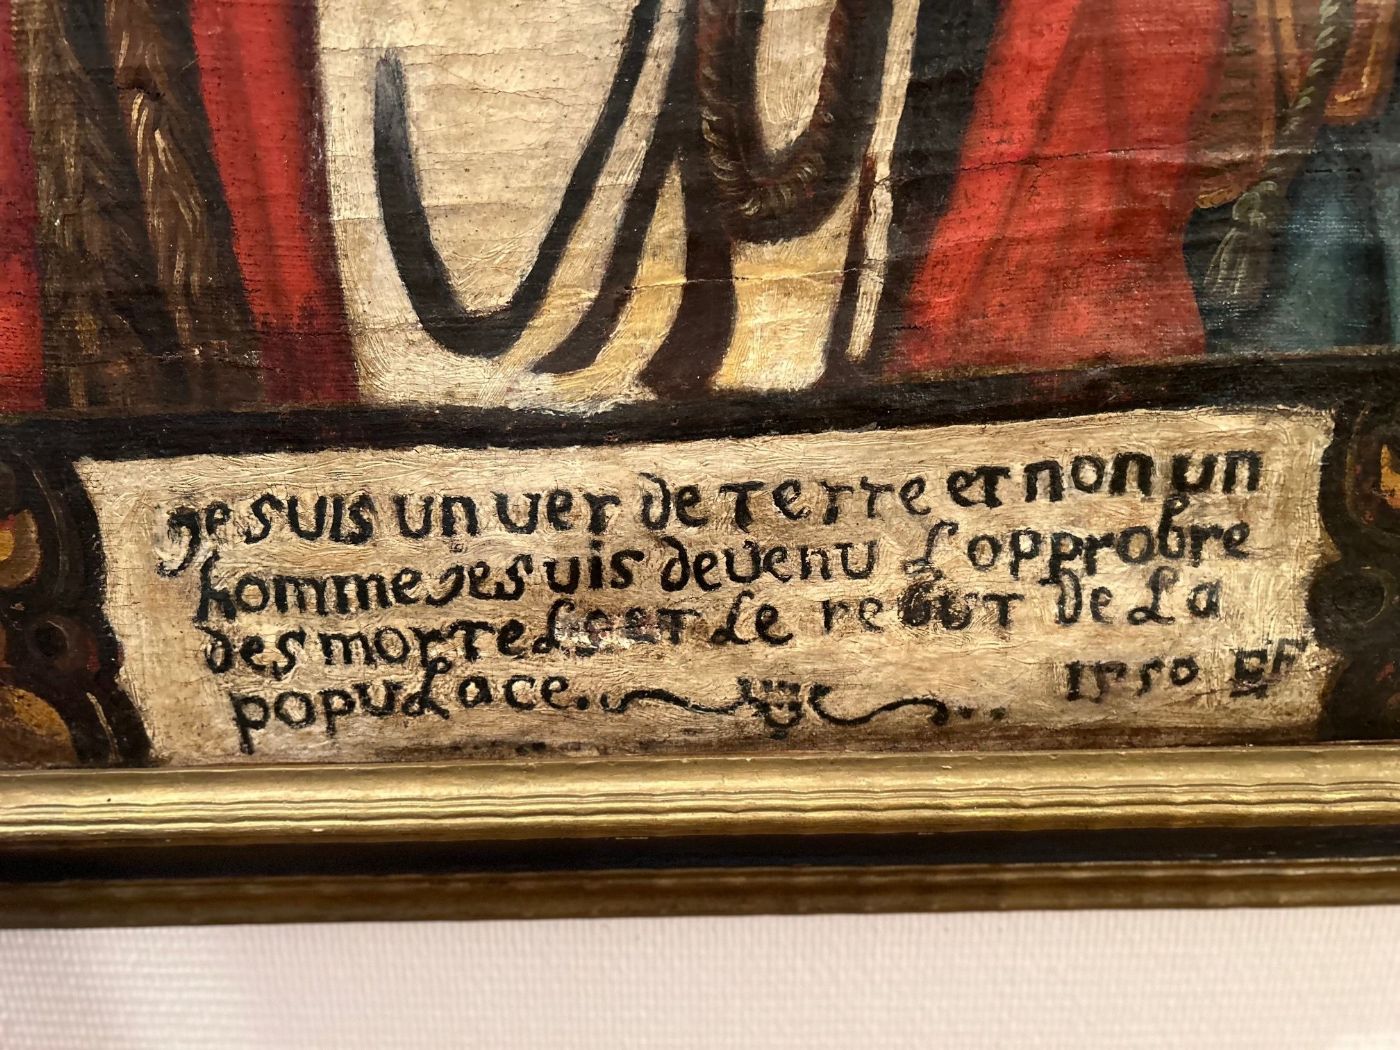 je suis un ver de terre et non un
homme je suis devenu L'opprobre
des morteLs et Le rebut de La
popuLace.
1550 EF